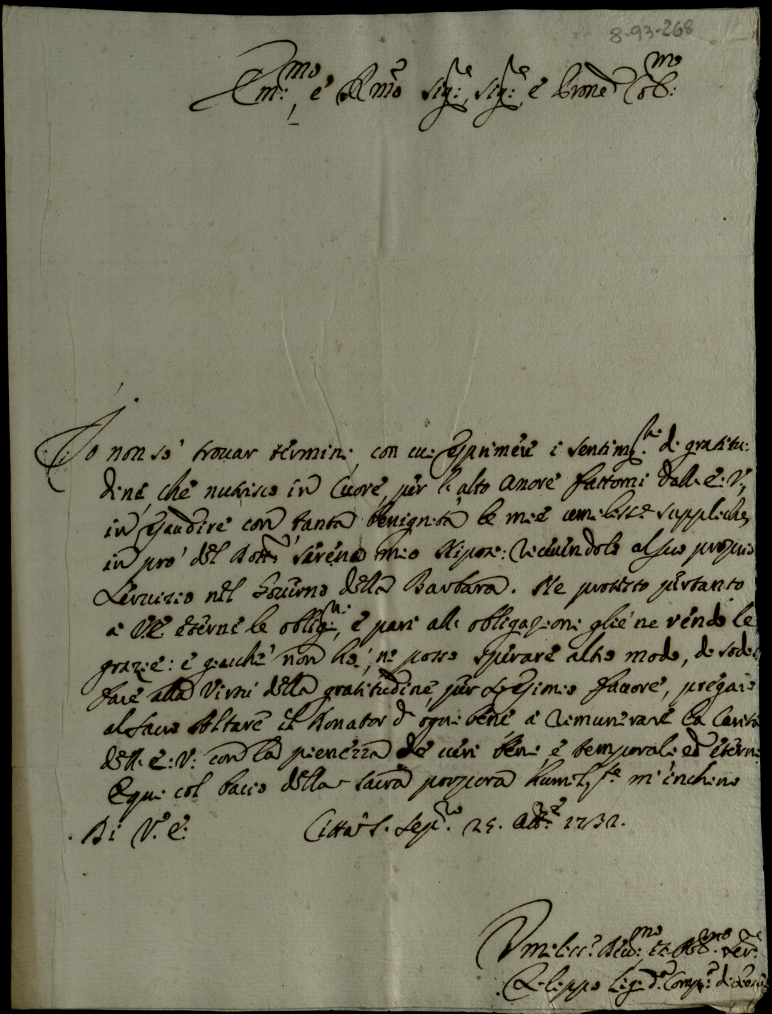 8-93-268
Em:mo, e Rmo Sig:re, Sig:re, e Prone Col:mo
Io non so' trovar termini con cui esprimere i sentim:ti di gratitu-
dine che nutrisco in Cuore, per l'alto onore fattomi dall' E: V:,
in esaudire con tanta benignità le mie umilissme suppliche,
in prò del Dottr Sereno mio Nipote: ricevendolo al suo proprio
servizio nel Governo della Barbara. Ne protesto pertanto
a V:E eterne le oblig:ni, e pari alle obligazioni gliene rendo le
grazie: e giacchè non hò, ne posso sperare altro modo, di sodis
fare alla Virtù della gratitudine, per sì esimio favore, pregarò
al sacro Altare il Donator d' ogni bene a remunerare la Carità
dell' E: V: con la pienezza de veri beni e temporali ed eterni
E qui col bacio della sacra porpora humil:te m'inchino
Di V: E: Città S. Sepo. 25. 1732.
Umiliss:o Devo:mo et Obb:mo Ser:re
Filippo